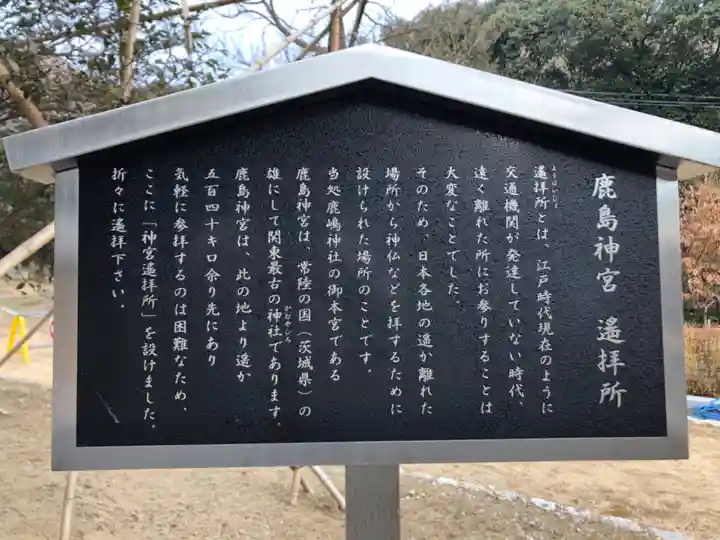 鹿島神宮 遙拝所
ようはいじょ
遙拝所とは、江戸時代現在のように
交通機関が発達していない時代、
遠く離れた所にお参りすることは
大変なことでした。
そのため、日本各地の遥か離れた
場所から神仏などを拝するために
設けられた場所のことです。
当処鹿嶋神社の御本宮である
鹿島神宮は、常陸の国（茨城県）の
雄にして関東最古の神社であります。
かむやしろ
鹿島神宮は、此の地より遥か
五百四十キロ余り先にあり
気軽に参拝するのは困難なため、
ここに「神宮遙拝所」を設けました。
折々に遙拝下さい。